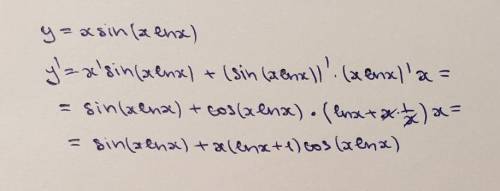 y = x sin(x lnx)
y' = x' sin(x lnx) + (sin(x lnx))' · (x lnx)' x =
= sin(x lnx) + cos(x lnx) · (lnx + x · 1/x) x =
= sin(x lnx) + x(lnx + 1) cos(x lnx)